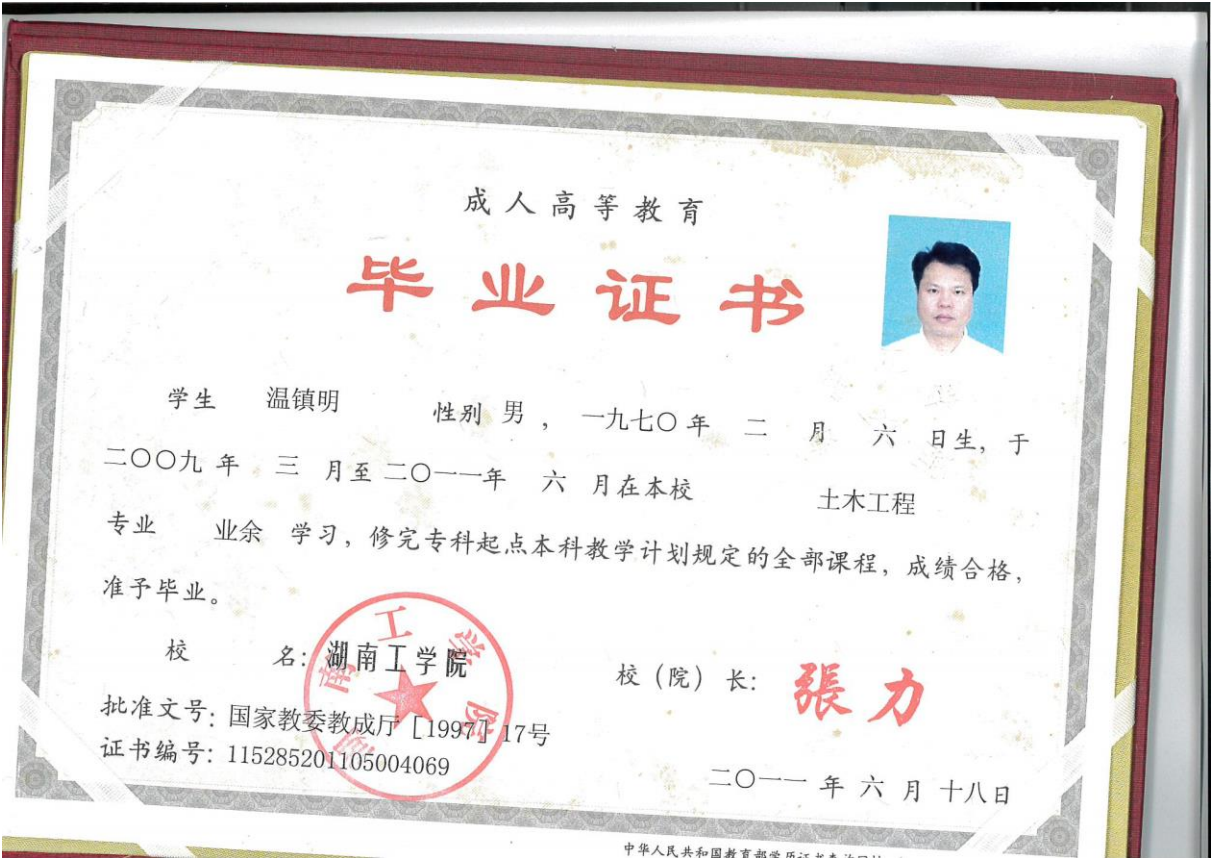 成人高等教育
毕业证书
学生 温镇明 性别 男 ， 一九七〇年 二 月 六 日生，于
二〇〇九 年 三 月至 二〇一一年 六 月在本校 土木工程
专业 业余 学习，修完专科起点本科教学计划规定的全部课程，成绩合格，
准予毕业。
校 名：湖南工学院
湖南工学院
校（院）长： 張力
批准文号：国家教委教成厅［1997］17号
证书编号：115285201105004069
二〇一一 年 六 月 十八日
中华人民共和国教育部学历证书查询网